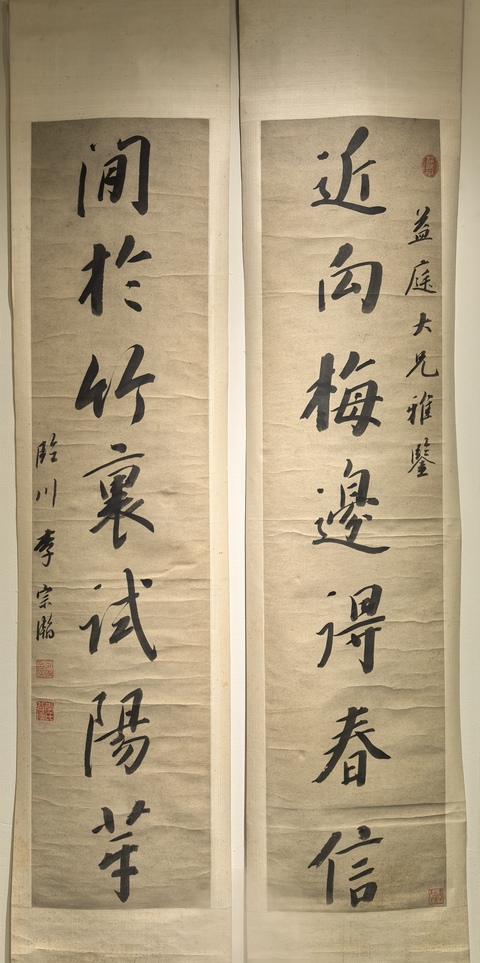 益庭大兄雅鑒
近向梅邊得春信
閒於竹裏試陽芽
臨川李宗瀚